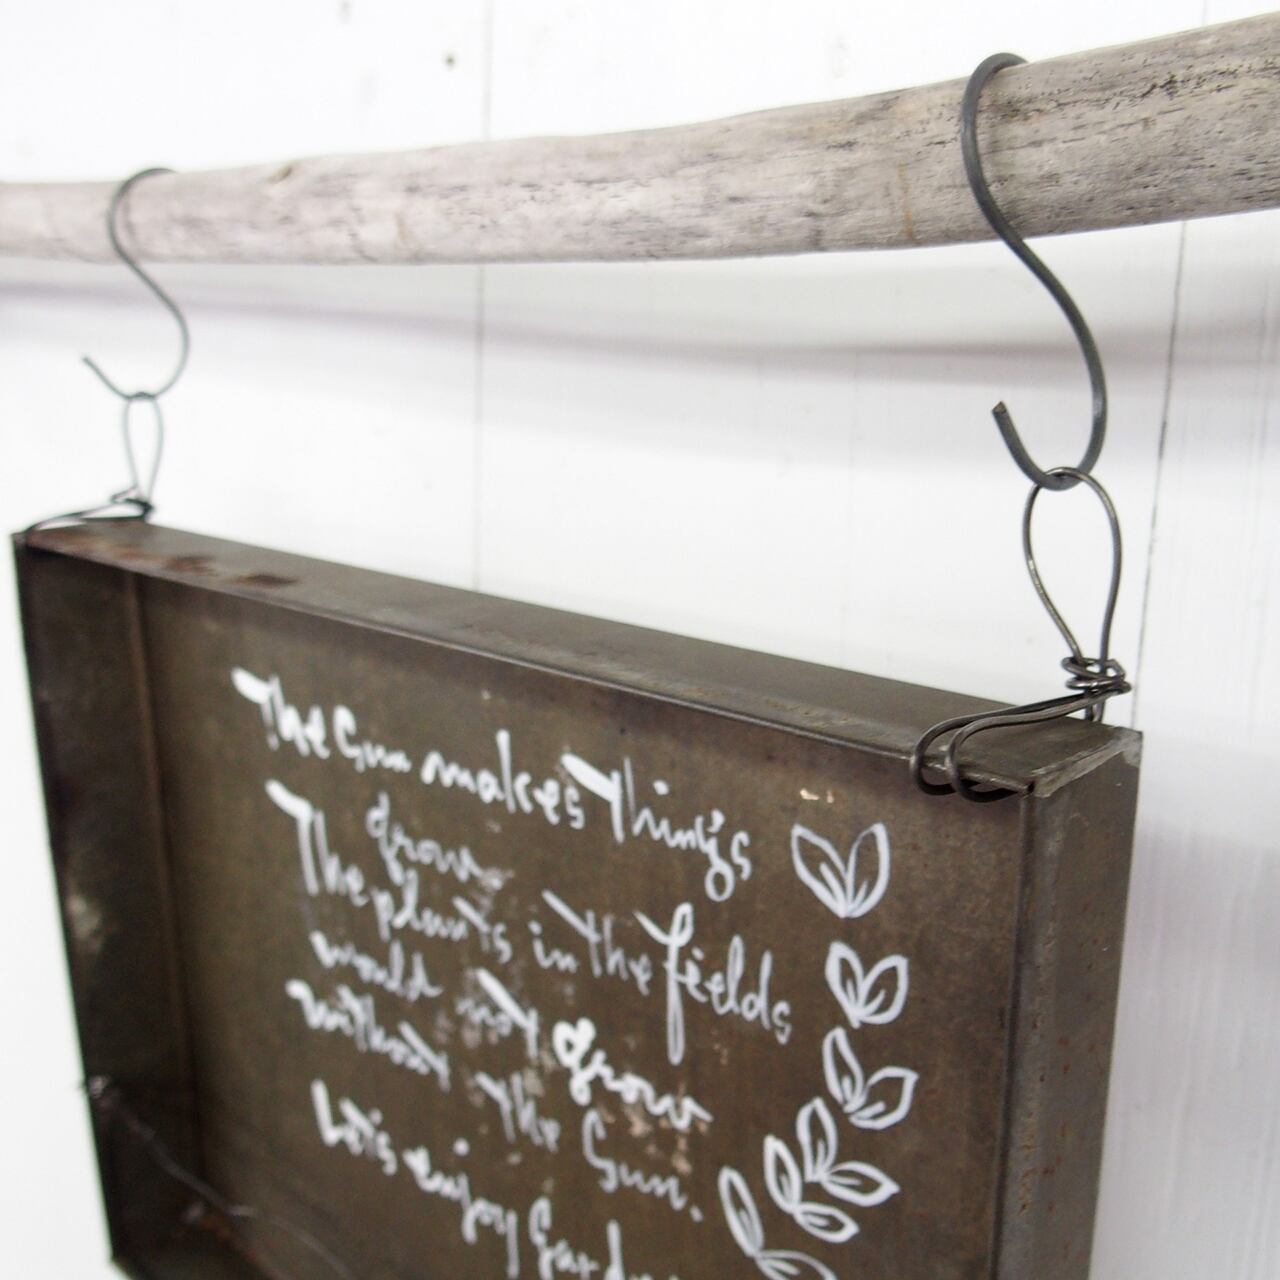 The Sun makes Things
grow.
The plants in the fields
would not grow
without The Sun.
Let's enjoy